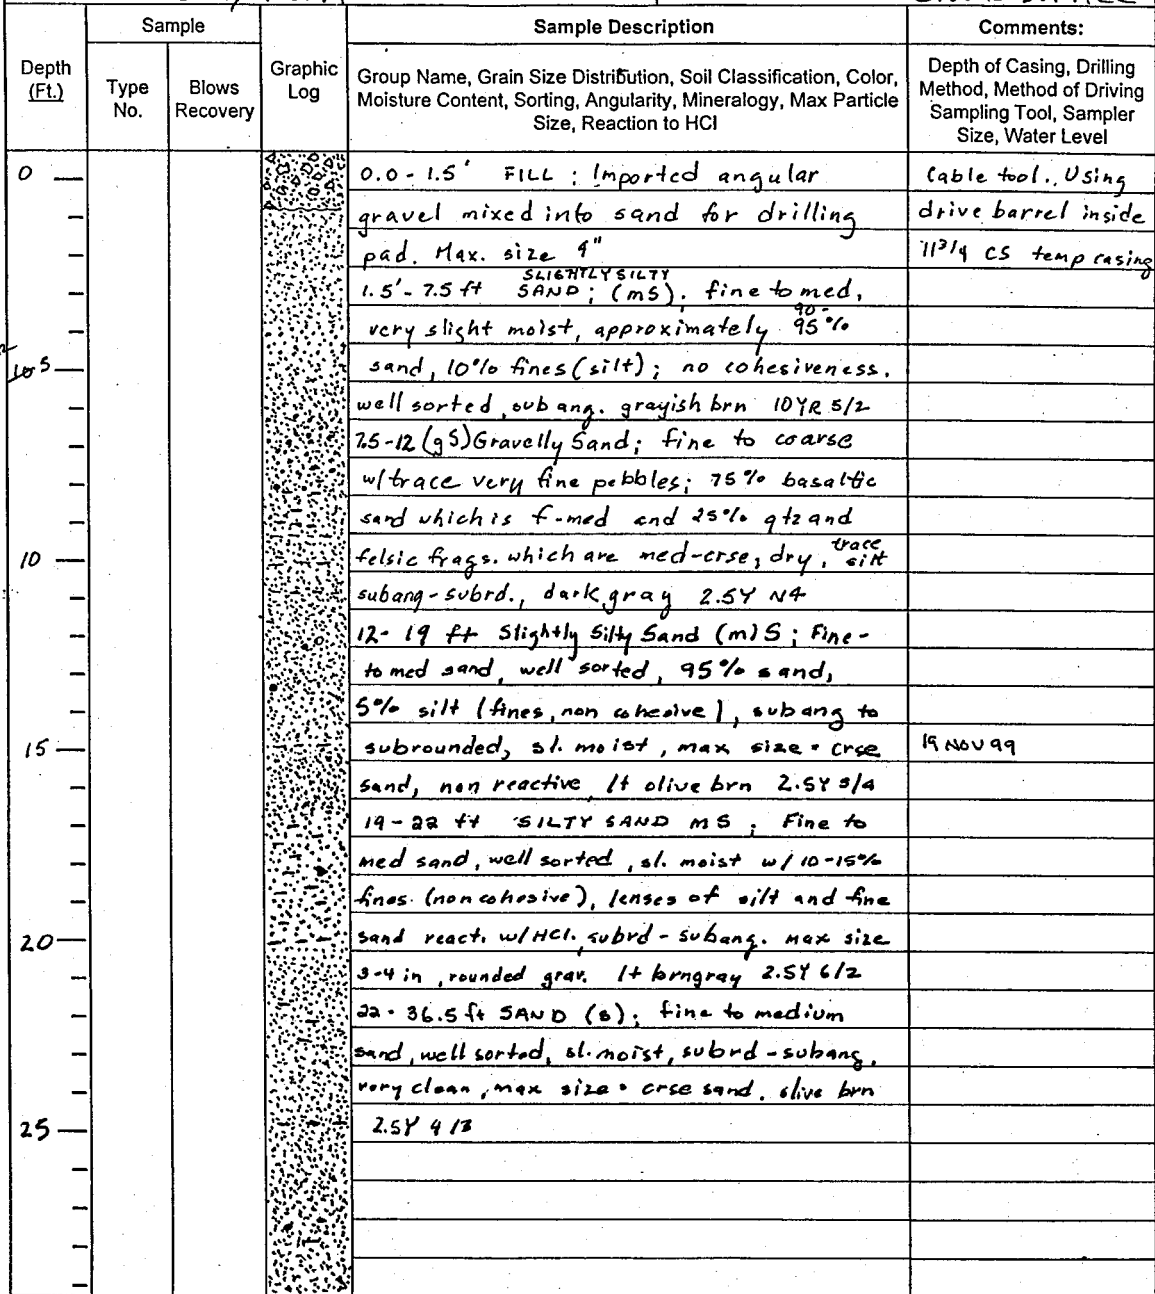 Sample
Sample Description
Comments:
Depth
(Ft.)
Type
No.
Blows
Recovery
Graphic
Log
Group Name, Grain Size Distribution, Soil Classification, Color,
Moisture Content, Sorting, Angularity, Mineralogy, Max Particle
Size, Reaction to HCl
Depth of Casing, Drilling
Method, Method of Driving
Sampling Tool, Sampler
Size, Water Level
0
0.0 - 1.5' FILL : Imported angular
Cable tool. Using
gravel mixed into sand for drilling
drive barrel inside
pad. Max. size 4"
11 3/4 CS temp casing
SLIGHTLY SILTY
1.5'- 7.5 ft SAND; (mS). fine to med,
90-
very slight moist, approximately 95%
5
sand, 10% fines (silt); no cohesiveness.
well sorted, sub ang. grayish brn 10YR 5/2
7.5-12 (gS) Gravelly Sand; fine to coarse
w/trace very fine pebbles; 75% basaltic
sand which is f-med and 25% qtz and
10
felsic frags. which are med-crse, dry, trace silt
subang-subrd., dark gray 2.5Y N4
12- 19 ft Slightly Silty Sand (m)S; Fine-
to med sand, well sorted, 95% sand,
5% silt (fines, non cohesive), subang to
15
subrounded, sl. moist, max size = crse
19 NOV 99
sand, non reactive lt olive brn 2.5Y 5/4
19-22 ft SILTY SAND mS; Fine to
med sand, well sorted, sl. moist w/ 10-15%
fines (non cohesive), lenses of silt and fine
20
sand react. w/HCl. subrd - subang. max size
3-4 in, rounded grav. lt brngray 2.5Y 6/2
22 - 36.5 ft SAND (s); fine to medium
sand, well sorted, sl. moist, subrd - subang,
very clean, max size = crse sand. olive brn
25
2.5Y 4/3